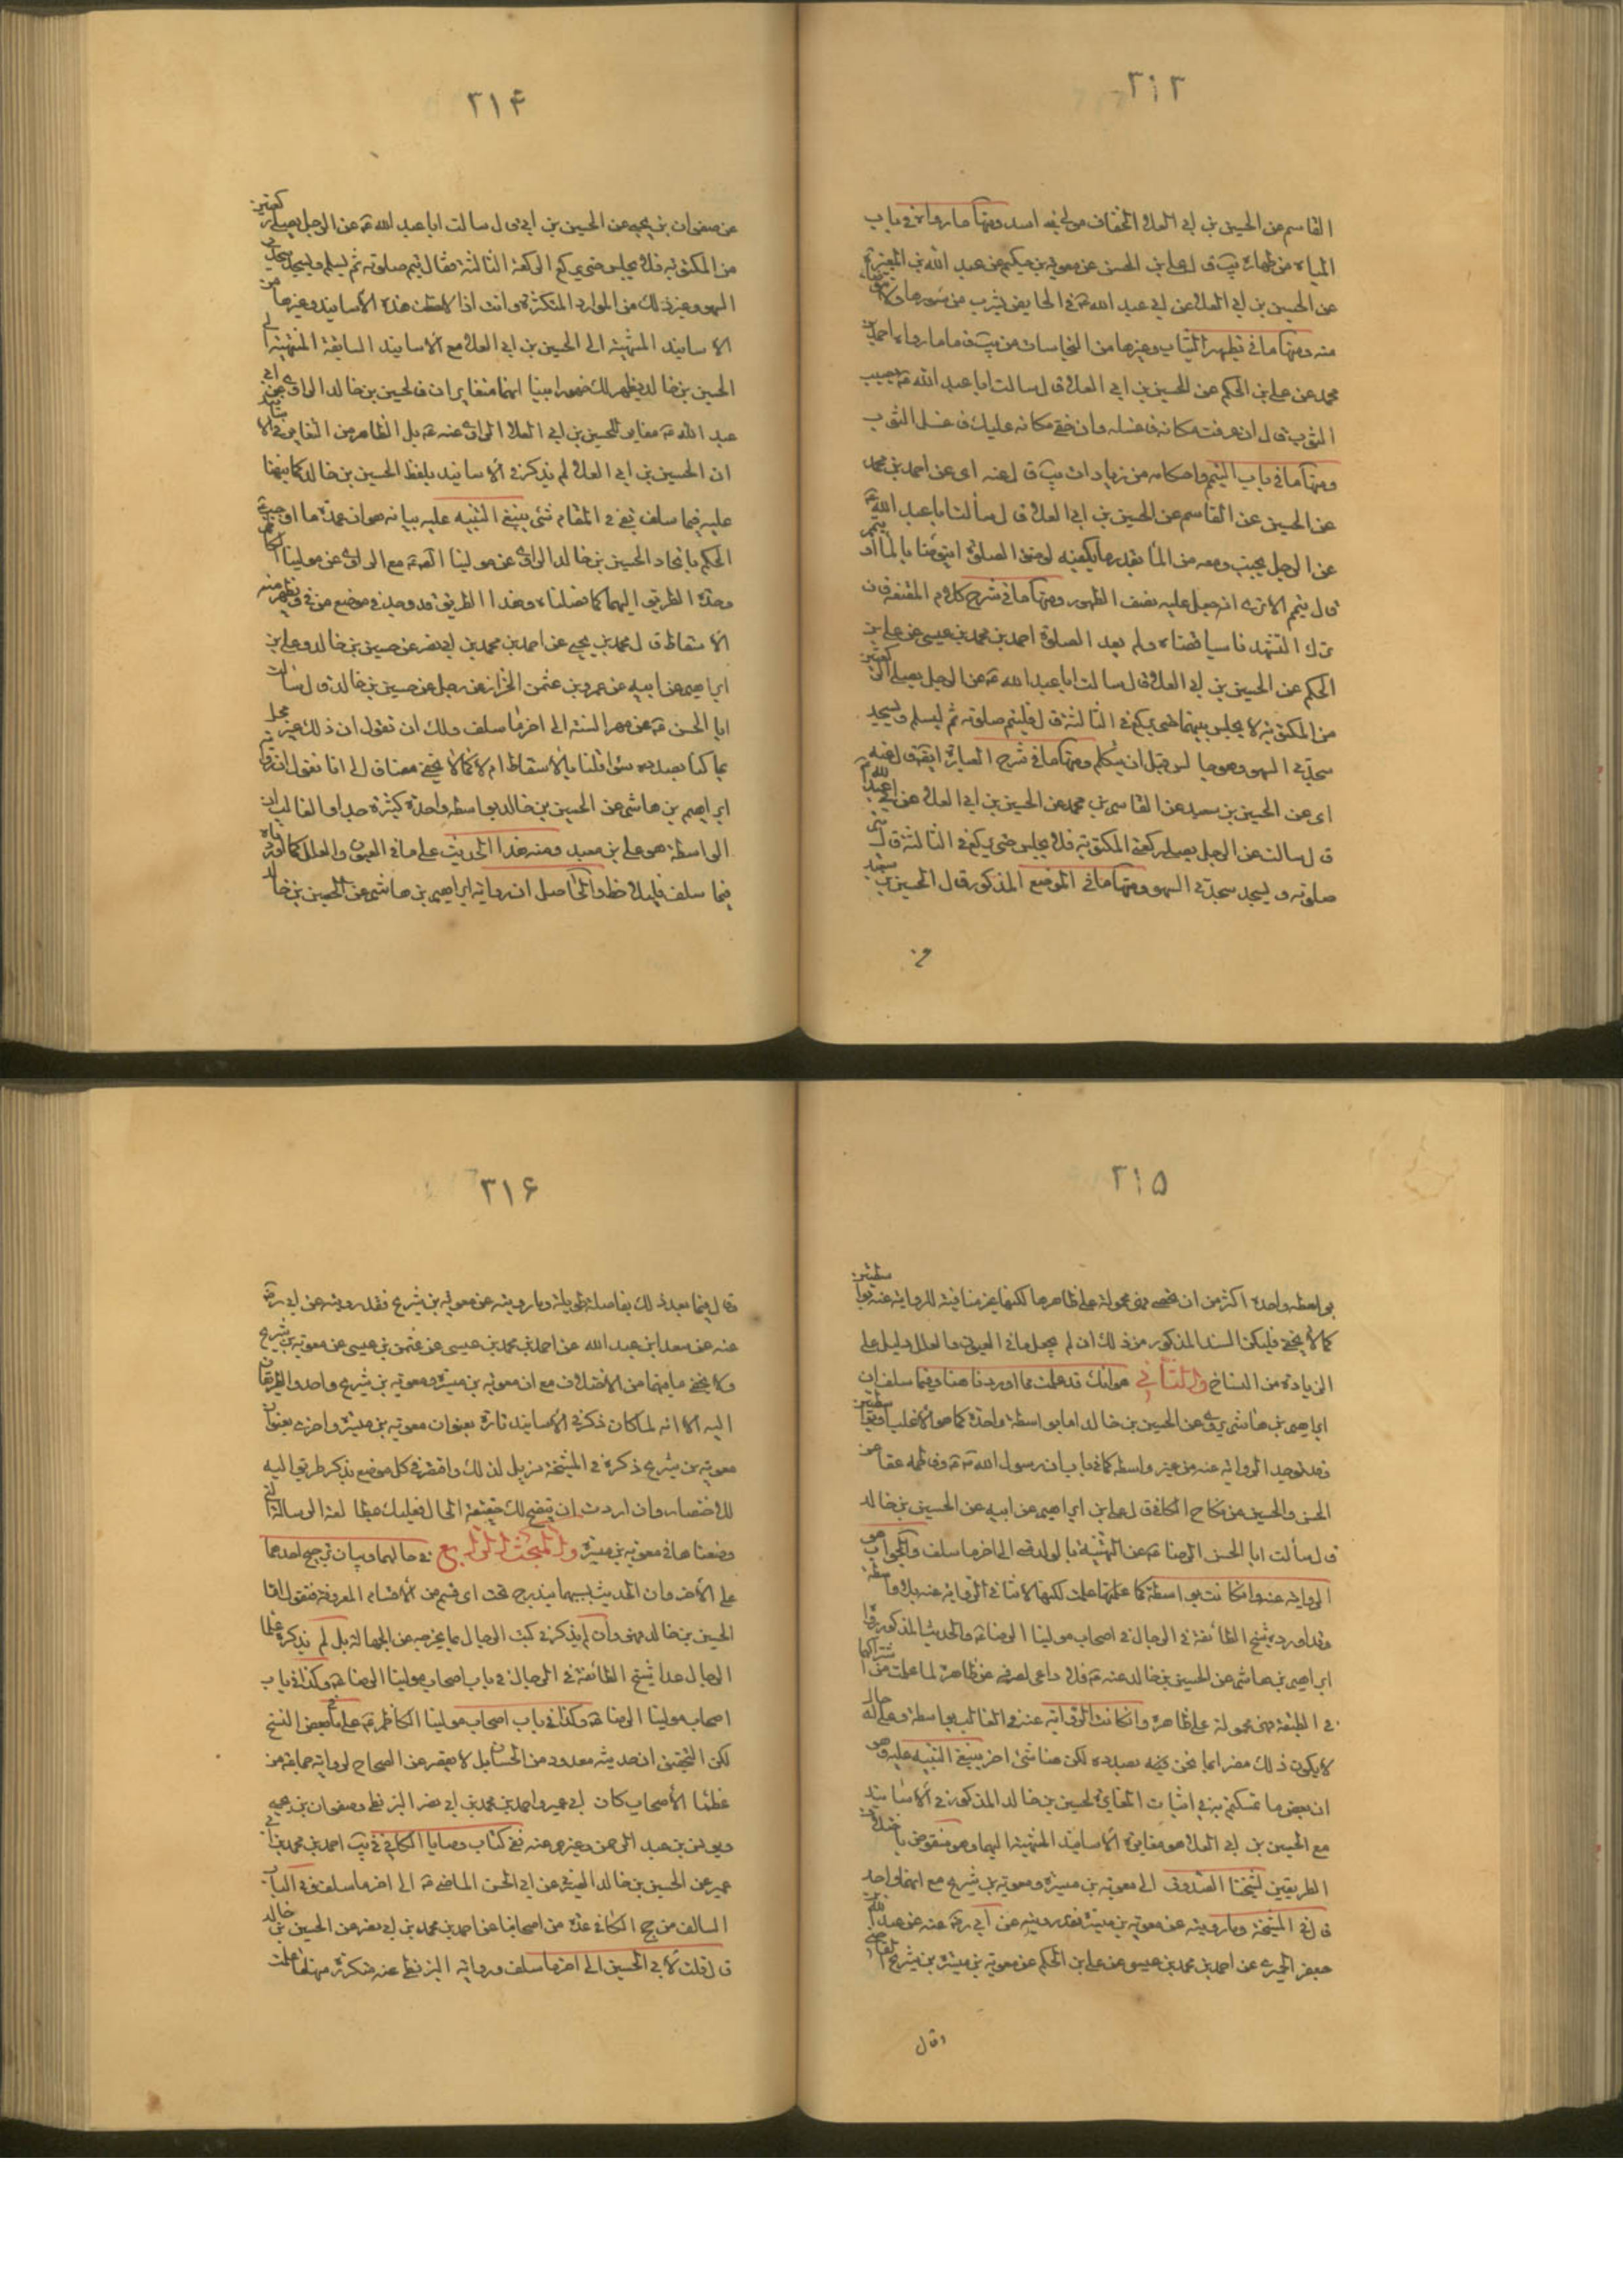 ٣١٣
القاسم عن الحسين بن ابي العلاء الخفاف مولى بني اسد ومنها ما رواه في باب
المياه من طهارة يب قال علي بن الحسن عن معوية بن حكيم عن عبد الله بن المغيرة
عن الحسين بن ابي العلاء عن ابي عبد الله ع في الحايض يشرب من سورها ولا
منه ومنها ما في تطهير الثياب وغيرها من النجاسات من يب وما رواه احمد بن
محمد عن علي بن الحكم عن الحسين بن ابي العلاء قال سالت ابا عبد الله ع يصيب
الثوب قال ان عرفت مكانه فاغسله وان خفي مكانه عليك فاغسل الثوب
ومنها ما في باب التيمم واحكامه من زيادات يب قال عنه اى عن احمد بن محمد
عن الحسين عن القاسم عن الحسين بن ابي العلاء قال سألت ابا عبد الله ع
عن الرجل يجنب ومعه من الماء بقدر ما يكفيه لوضوء الصلوة ايتوضأ بالماء او يتيمم
قال يتيمم الا ترى انه جعل عليه نصف الطهور ومنها ما في شرح كلام المقنعة فان
ترك التشهد ناسيا قضاه ولم يعد الصلوة احمد بن محمد بن عيسى عن علي بن
الحكم عن الحسين بن ابي العلاء قال سالت ابا عبد الله ع عن الرجل يصلي الركعتين
من المكتوبة لا يجلس بينهما حتى يركع في الثالثة قال فليتم صلوته ثم ليسلم ويسجد
سجدتي السهو وهو جالس قبل ان يتكلم ومنها ما في شرح العبارة ايضا قال عنه
اى عن الحسين بن سعيد عن القاسم بن محمد عن الحسين بن ابي العلاء عن ابي عبد الله ع
قال سالت عن الرجل يصلي ركعتي المكتوبة فلا يجلس حتى يركع في الثالثة قال يتم
صلوته ويسجد سجدتي السهو ومنها ما في الموضع المذكور قال الحسين بن سعيد
عن
٣١۴
عن صفوان بن يحيى عن الحسين بن ابي العلاء قال سالت ابا عبد الله ع عن الرجل يصلي ركعتين
من المكتوبة فلا يجلس حتى يركع الركعة الثالثة فقال يتم صلوته ثم يسلم ويسجد سجدتي
السهو وغير ذلك من الموارد المتكثرة وانت اذا لاحظت هذه الأسانيد وغيرها من
الأسانيد المنتهية الى الحسين بن ابي العلاء مع الأسانيد السابقة المنتهية الى
الحسين بن خالد يظهر لك ظهورا بينا انهما متغايران فالحسين بن خالد الراوى عن ابي
عبد الله ع مغاير للحسين بن ابي العلاء الراوى عنه ع بل الظاهر من التغاير في الأسانيد
ان الحسين بن ابي العلاء لم يذكر في الأسانيد بلفظ الحسين بن خالد كما نبهنا
عليه فيما سلف بقي في المقام شئ ينبغي التنبيه عليه بيانه هو ان عمدة ما اوجب
الحكم باتحاد الحسين بن خالد الراوى عن مولينا الصادق ع مع الراوى عن مولينا الكاظم
وحدة الطريق اليهما كما فصلناه وهذا الطريق قد وجد في موضع من في ويظهر منه
الأسقاط قال محمد بن يحيى عن احمد بن محمد بن ابي نصر عن حسين بن خالد وعلي بن
ابراهيم عن ابيه عن عمرو بن عثمن الخزاز عن رجل عن حسين بن خالد قال سالت
ابا الحسن ع عن مهر السنة الى اخر ما سلف ولك ان تقول ان ذلك غير مخل
بما كنا بصدده سواء قلنا بالأسقاط ام لا كما لا يخفى مضافا الى انا نقول ان رواية
ابراهيم بن هاشم عن الحسين بن خالد بواسطة واحدة كثيرة جدا والغالب ان
الواسطة هو علي بن معبد ومنه هذا الحديث على ما في العيون والعلل كما اوردناه
فيما سلف فليلاحظ والحاصل ان رواية ابراهيم بن هاشم عن الحسين بن خالد
٣١۵
بواسطة واحدة اكثر من ان تحصى فهي محمولة على ظاهرها لكنها غير منافية للرواية عنه بواسطتين
كما لا يخفى فليكن السند المذكور من ذلك ان لم يجعل ما في العيون والعلل دليل على
الزيادة من النساخ والثاني هو انك قد علمت مما اوردنا هنا وفيما سلف ان
ابراهيم بن هاشم يروى عن الحسين بن خالد اما بواسطة واحدة كما هو الأغلب او بواسطتين
وقد توجد الرواية عنه من غير واسطة كما في باب ان رسول الله ص وفاطمة عقا عن
الحسن والحسين من نكاح الكافي قال علي بن ابراهيم عن ابيه عن الحسين بن خالد
قال سألت ابا الحسن الرضا ع عن التهنية بالولد متى الى اخر ما سلف والجواب هو
الرواية عنه وان كانت بواسطة كما علمتها علمت لكنها لا تنافي الرواية عنه بلا واسطة
وقد اورده شيخ الطائفة في الرجال في اصحاب مولينا الرضا ع والحديث المذكور رواه
ابراهيم بن هاشم عن الحسين بن خالد عنه ع فلا داعى لصرفه عن ظاهره لما علمت من اشتراكهما
في الطبقة فهي محمولة على ظاهره وان كانت الرواية عنه في الغالب بواسطة وعلى اى حال
لا يكون ذلك مضرا بما نحن فيه بصدده لكن هنا شئ اخر ينبغي التنبيه عليه وهو
ان بعض ما تمسكتم به في اثبات التغاير لحسين بن خالد المذكور في الأسانيد
مع الحسين بن ابي العلاء هو مغايرة الأسانيد المنتهية اليهما وهو منقوض باختلاف
الطريقين لشيخنا الصدوق الى معوية بن ميسرة ومعوية بن شريح مع انهما واحد
قال في المشيخة وما رويته عن معوية بن ميسرة فقد رويته عن أبي رضي عنه عن عبد الله بن
جعفر الحميرى عن احمد بن محمد بن عيسى عن علي بن الحكم عن معوية بن ميسرة بن شريح القاضي
وقال
٣١۶
وقال فيما بعد ذلك بفاصلة طويلة وما رويته عن معوية بن شريح فقد رويته عن ابي رضي
عنه عن سعد ابن عبد الله عن احمد بن محمد بن عيسى عن عثمن بن عيسى عن معوية بن شريح
ولا يخفى ما بينهما من الاختلاف مع ان معوية بن ميسرة ومعوية بن شريح واحد والطريقان
اليه الا انه لما كان ذكره في الأسانيد تارة بعنوان معوية بن ميسرة واخرى بعنوان
معوية بن شريح ذكره في المشيخة مزيل لذلك واقتصر في كل موضع بذكر طريق اليه
للاختصار وان اردت ان يتضح لك حقيقة الحال فعليك بمطالعة الرسالة التي
وضعناها في معوية بن ميسرة والمبحث الرابع في حالهما وبيان ترجيح احدهما
على الأخر وان الحديث بسببهما يندرج تحت اى قسم من الأقسام المعروفة فنقول اما
الحسين بن خالد فهو وان لم يذكر في كتب الرجال ما يخرجه عن الجهالة بل لم يذكره علماء
الرجال عدا شيخ الطائفة في الرجال في باب اصحاب مولينا الرضا ع وكذا في باب
اصحاب مولينا الرضا ع وكذا في باب اصحاب مولينا الكاظم ع على ما في بعض النسخ
لكن التحقيق ان حديثه معدود من الحسان بل لا يقصر عن الصحاح لرواية جماعة من
عظماء الأصحاب كابن ابي عمير واحمد بن محمد بن ابي نصر البزنطي وصفوان بن يحيى
ويونس بن عبد الرحمن وغيرهم عنه ففي كتاب وصايا الكافي في يب احمد بن محمد بن ابي
عمير عن الحسين بن خالد الصيرفي عن ابي الحسن الماضي ع الى اخر ما سلف وفي الباب
السالف من حج الكافي عدة من اصحابنا عن احمد بن محمد بن ابي نصر عن الحسين بن خالد
قال قلت لابي الحسن الى اخر ما سلف ورواية البزنطي عنه متكثرة منها ما علمت